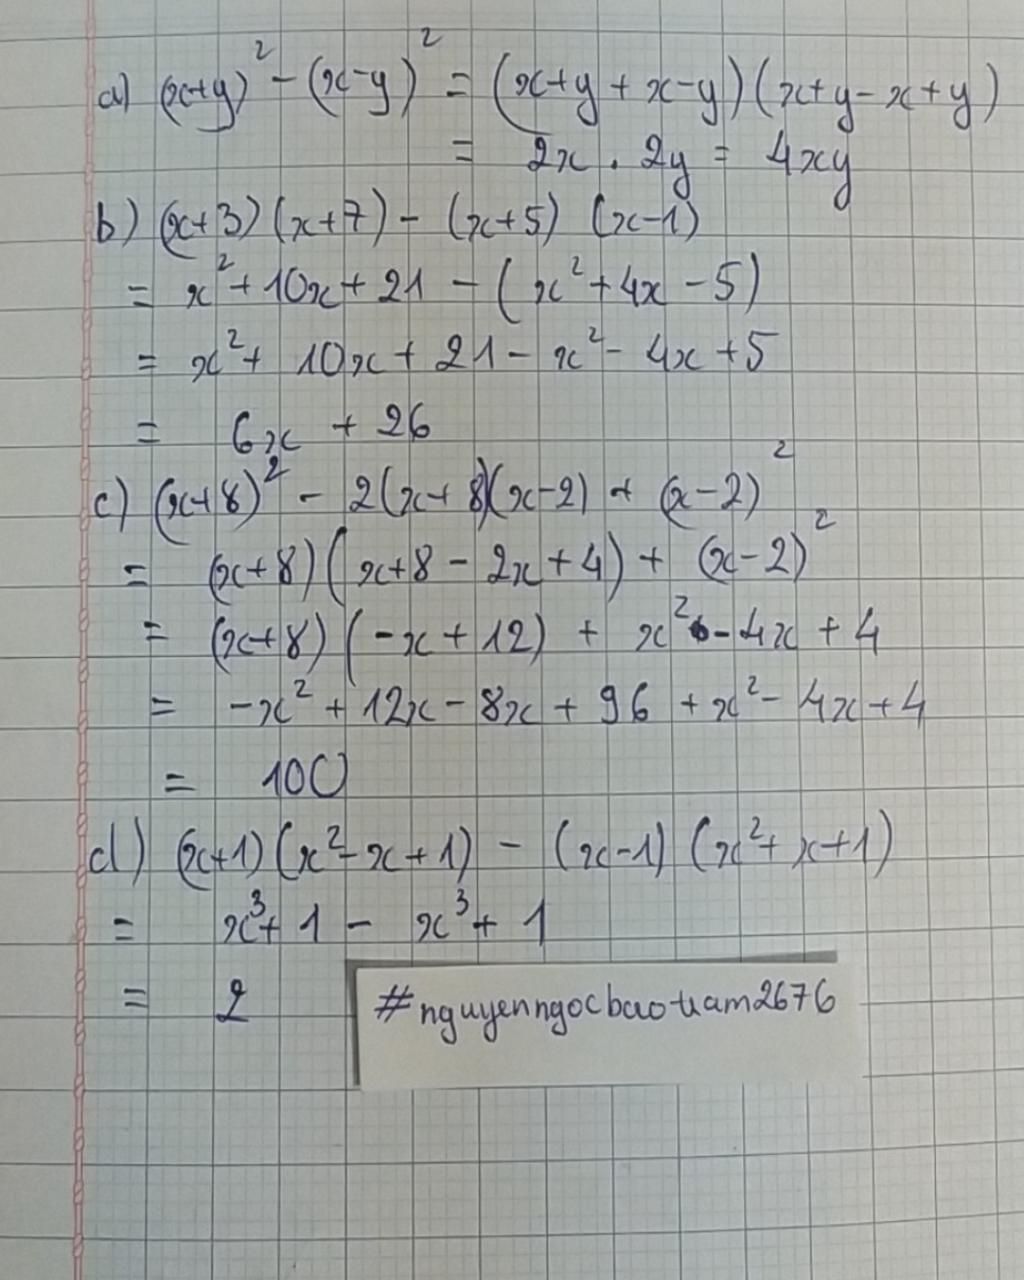 a) (x+y)² - (x-y)² = (x+y+x-y)(x+y-x+y)
= 2x . 2y = 4xy
b) (x+3)(x+7) - (x+5) (x-1)
= x² + 10x + 21 - (x² + 4x - 5)
= x² + 10x + 21 - x² - 4x + 5
= 6x + 26
c) (x+8)² - 2(x+8)(x-2) + (x-2)²
= (x+8)(x+8 - 2x + 4) + (x-2)²
= (x+8)(-x + 12) + x² - 4x + 4
= -x² + 12x - 8x + 96 + x² - 4x + 4
= 100
d) (x+1)(x² - x + 1) - (x-1) (x² + x + 1)
= x³ + 1 - x³ + 1
= 2
#nguyenngocbaotram2676